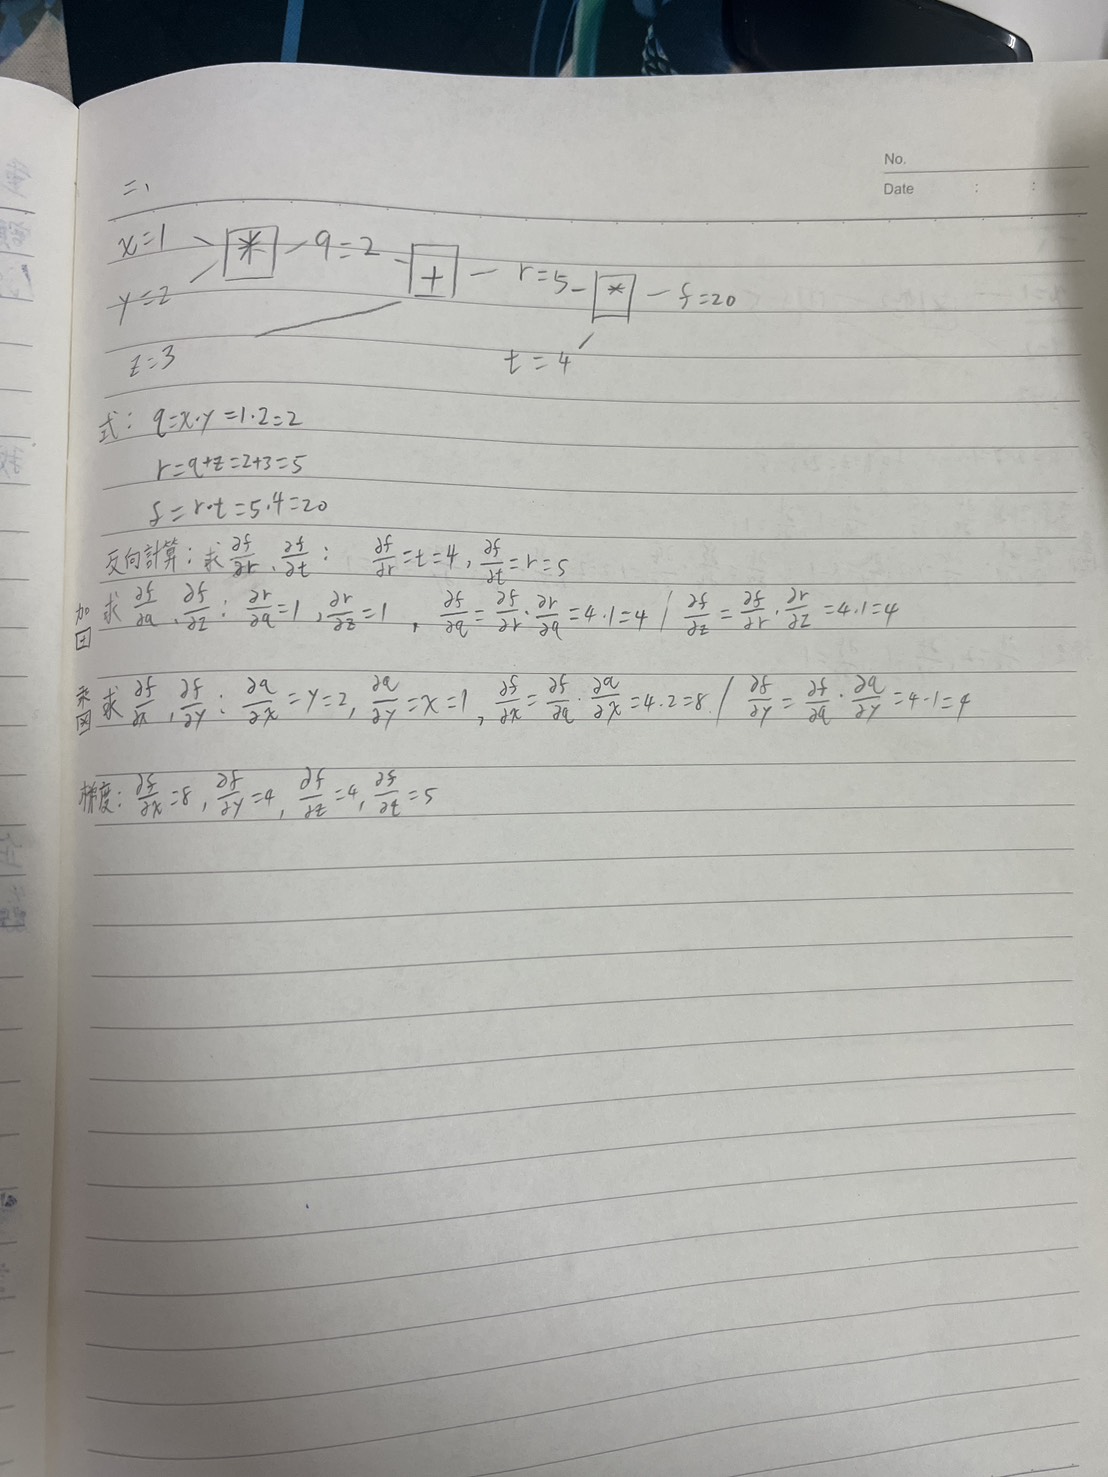 No.
Date : :
二、
x=1 * q=2 + r=5 * f=20
y=2
z=3 t=4
式: q=x·y=1·2=2
r=q+z=2+3=5
f=r·t=5·4=20
反向計算: 求 ∂f/∂r、∂f/∂t: ∂f/∂r=t=4, ∂f/∂t=r=5
加 求 ∂f/∂q、∂f/∂z: ∂r/∂q=1, ∂r/∂z=1, ∂f/∂q=∂f/∂r·∂r/∂q=4·1=4 / ∂f/∂z=∂f/∂r·∂r/∂z=4·1=4
乘 求 ∂f/∂x, ∂f/∂y: ∂q/∂x=y=2, ∂q/∂y=x=1, ∂f/∂x=∂f/∂q·∂q/∂x=4·2=8 / ∂f/∂y=∂f/∂q·∂q/∂y=4·1=4
梯度: ∂f/∂x=8, ∂f/∂y=4, ∂f/∂z=4, ∂f/∂t=5